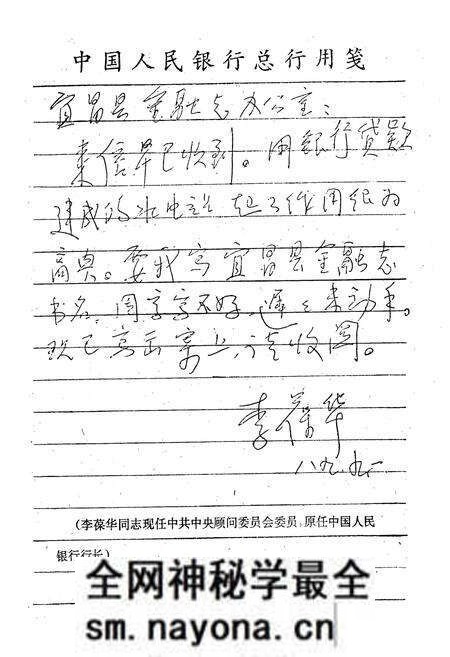 中国人民银行总行用笺
宜昌县金融志办公室:
来信早已收到。用银行贷款
建成的水电站起了作用很为
高兴。要我写宜昌县金融志
书名,因字写不好,迟迟未动手。
现已写出寄上,请收阅。
李葆华
八九.九.一
(李葆华同志现任中共中央顾问委员会委员,原任中国人民
银行行长)
全网神秘学最全
sm.nayona.cn